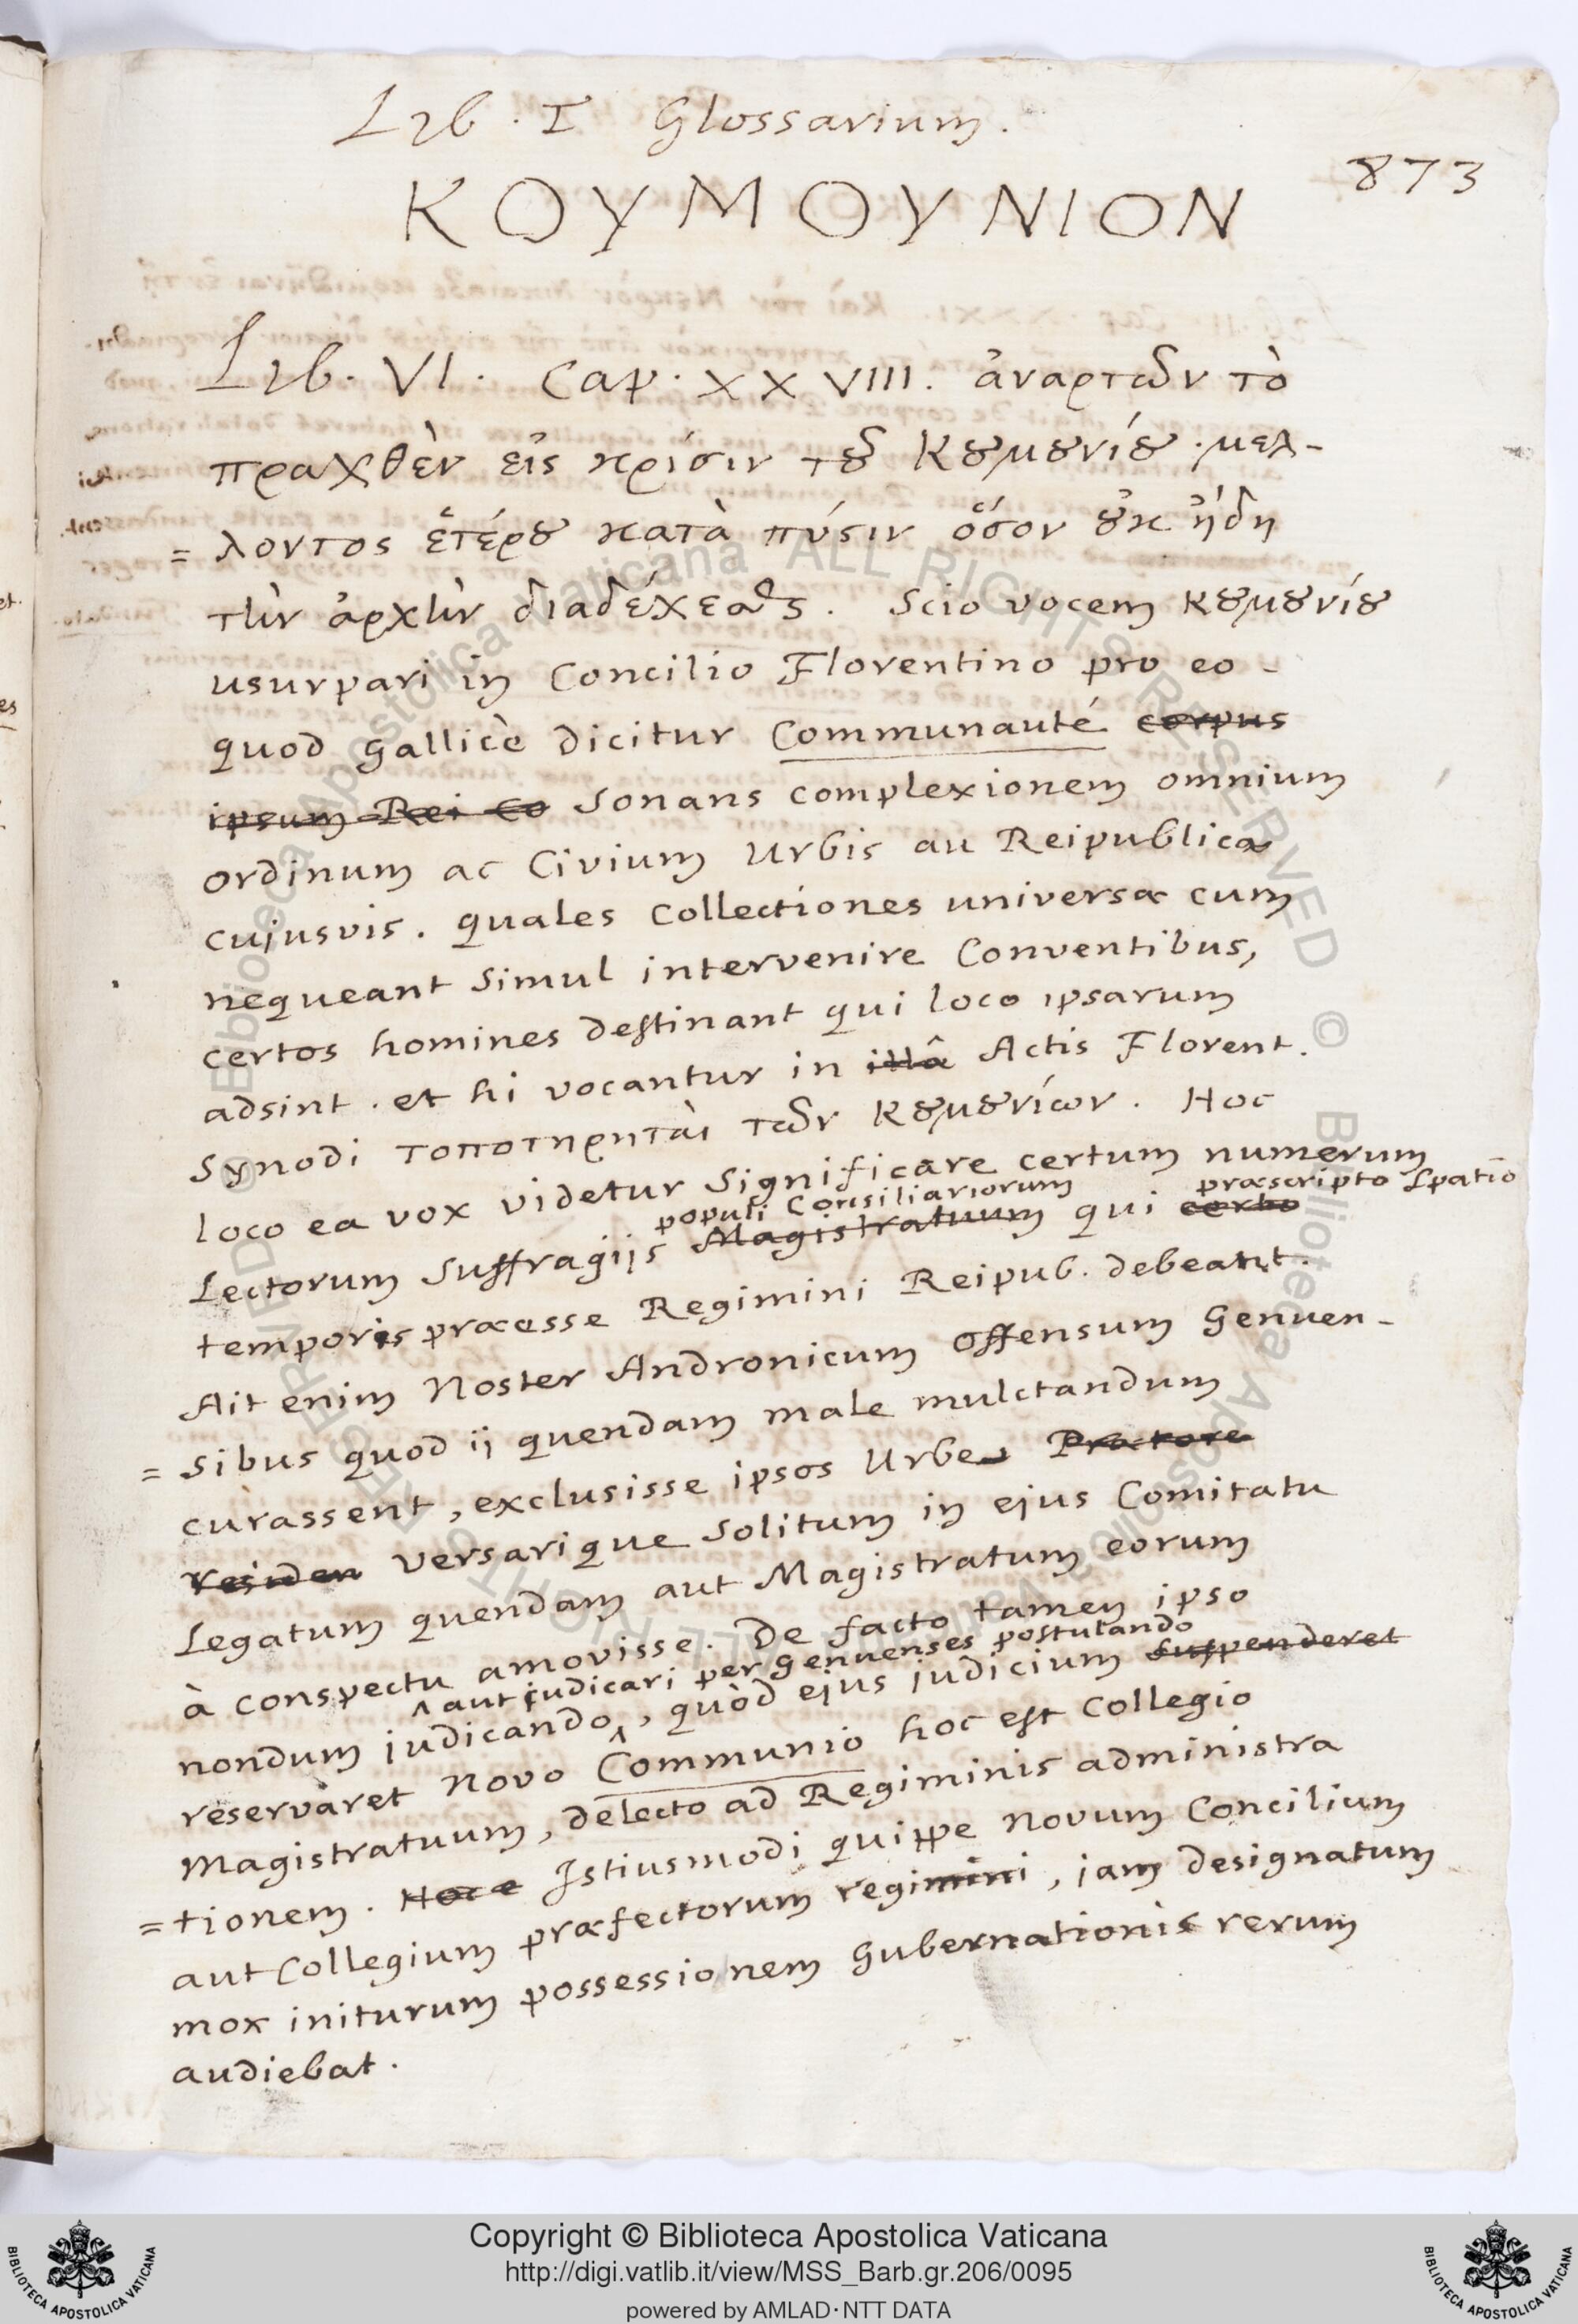 Lib. I Glossarium.
873
ΚΟΥΜΟΥΝΙΟΝ
Lib. VI. Cap. XXVIII. ἀναρτῶν τὸ
πραχθὲν εἰς κρίσιν τȣ͂ Κȣμȣνίȣ. μελ-
= λοντος ἑτέρȣ κατὰ πύσιν ὅσον ȣ̓κ ἤδη
τὴν ἀρχὴν διαδέχεσθαι. Scio vocem κȣμȣνίȣ
usurpari in Concilio Florentino pro eo-
quod gallicè dicitur Communauté corpus
ipsum Rei Co sonans complexionem omnium
ordinum ac Civium Urbis au Reipublicæ
cujusvis. quales collectiones universæ cum
nequeant simul intervenire Conventibus,
certos homines destinant qui loco ipsarum
adsint. et hi vocantur in illâ Actis Florent.
Synodi τοποτηρηταὶ τῶν κȣμȣνίων. Hoc
loco ea vox videtur significare certum numerum
populi Consiliariorum præscripto spatio
Lectorum suffragijs Magistratuum qui certo
temporis præesse Regimini Reipub. debeant.
Ait enim Noster Andronicum offensum Genuen-
= sibus quod ij quendam male mulctandum
curassent, exclusisse ipsos Urbe Prætore
residen versarique solitum in ejus Comitatu
Legatum quendam aut Magistratum eorum
à conspectu amovisse. De facto tamen ipso
aut judicari per Genuenses postulando
nondum judicando, quòd ejus judicium suspenderet
reservaret novo Communio hoc est collegio
Magistratuum, delecto ad Regiminis administra
= tionem. Hoce Istiusmodi quippe novum Concilium
aut Collegium præfectorum regimini, jam designatum
mox initurum possessionem Gubernationis rerum
audiebat.
Copyright © Biblioteca Apostolica Vaticana
http://digi.vatlib.it/view/MSS_Barb.gr.206/0095
powered by AMLAD·NTT DATA